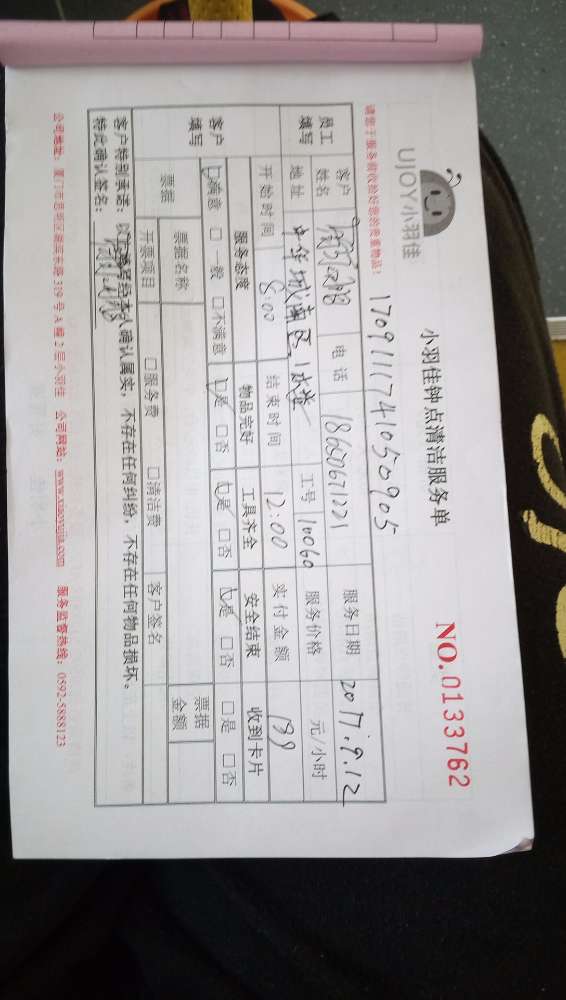 UJOY小羽佳
小羽佳钟点清洁服务单
NO.0133762
请您于服务前收拾好您的贵重物品！
1709111741050905
员工填写
客户姓名 电话 18650671221 服务日期 2017.9.12
地址 中华城南区 工号 10060 服务价格 元/小时
开始时间 8:00 结束时间 12:00 实付金额 199
客户填写
服务态度 物品完好 工具齐全 安全结束 收到卡片
□满意 □一般 □不满意 □是 □否 □是 □否 □是 □否 □是 □否
票据 票据名称 票据金额
开票项目 □服务费 □清洁费 客户签名
客户特别承诺：以上编号经本人确认属实，不存在任何纠纷，不存在任何物品损坏。
特此确认签名：
公司地址：厦门市思明区湖滨东路319号A幢2层小羽佳 公司网站：www.xiaoyujia.com 服务监督热线：0592-5888123